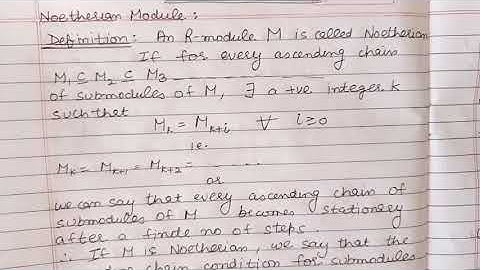 Noetherian Module :
Definition : An R-module M is called Noetherian
If for every ascending chain
M₁ ⊆ M₂ ⊆ M₃ ________
of submodules of M, ∃ a +ve integer k
such that
Mₖ = Mₖ₊ᵢ ∀ i ≥ 0
i.e.
Mₖ = Mₖ₊₁ = Mₖ₊₂ = - - - - -
or
we can say that every ascending chain of
submodules of M becomes stationery
after a finite no of steps.
∴ If M is Noetherian, we say that the
chain condition for submodules